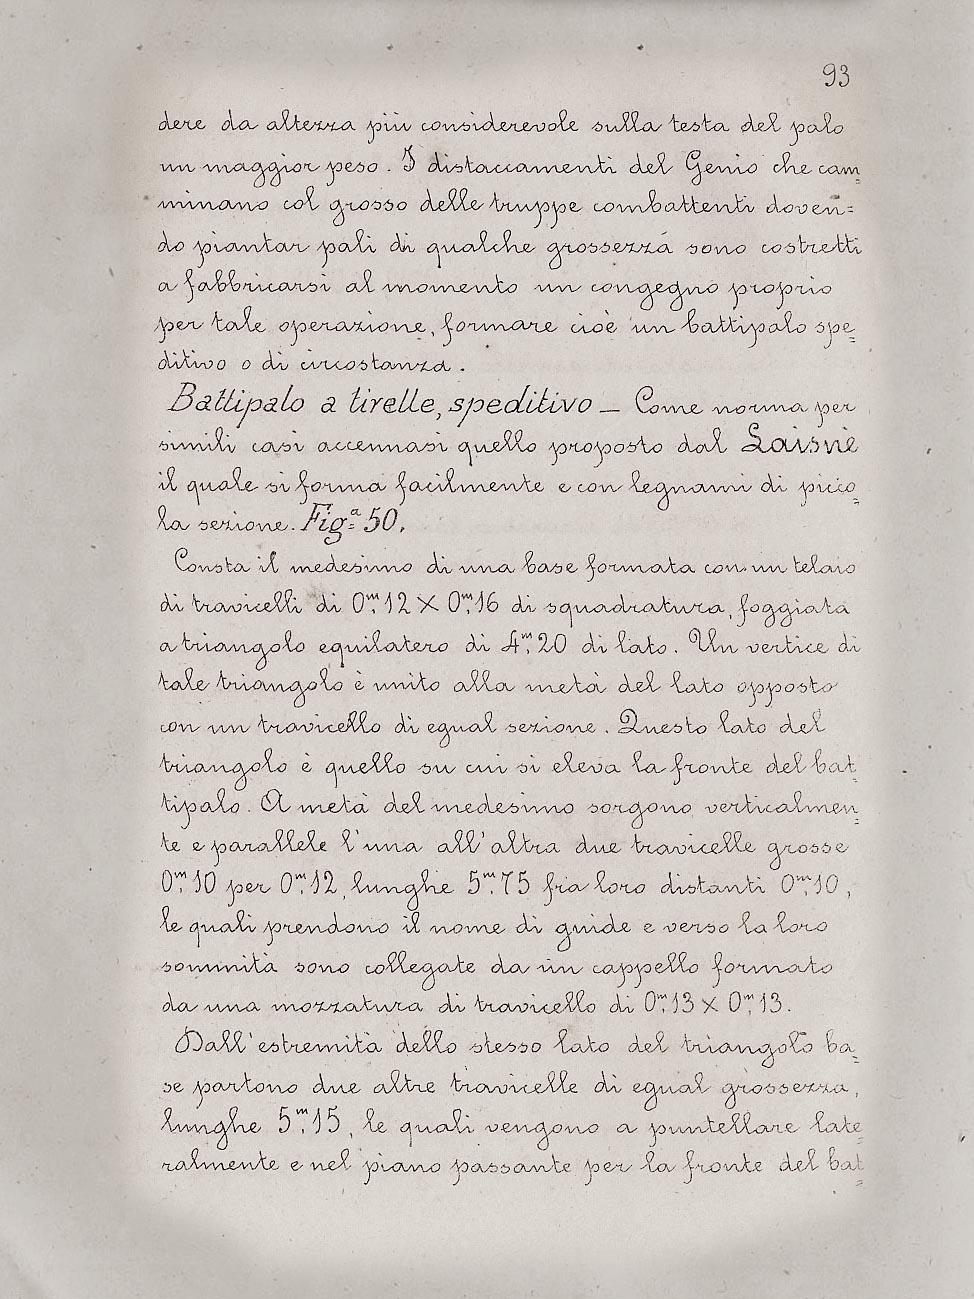 93
dere da altezza più considerevole sulla testa del palo
un maggior peso. I distaccamenti del Genio che cam=
minano col grosso delle truppe combattenti doven=
do piantar pali di qualche grossezza sono costretti
a fabbricarsi al momento un congegno proprio
per tale operazione, formare cioè un battipalo spe=
ditivo o di circostanza.
Battipalo a tirelle, speditivo — Come norma per
simili casi accennasi quello proposto dal Laisnè
il quale si forma facilmente e con legnami di picco=
la sezione. Fig.ª 50.
Consta il medesimo di una base formata con un telaio
di travicelli di 0ᵐ,12 × 0ᵐ,16 di squadratura, foggiata
a triangolo equilatero di 4ᵐ,20 di lato. Un vertice di
tale triangolo è unito alla metà del lato opposto
con un travicello di egual sezione. Questo lato del
triangolo è quello su cui si eleva la fronte del bat=
tipalo. A metà del medesimo sorgono verticalmen=
te e parallele l'una all'altra due travicelle grosse
0ᵐ,10 per 0ᵐ,12, lunghe 5ᵐ,75 fra loro distanti 0ᵐ,10,
le quali prendono il nome di guide e verso la loro
sommità sono collegate da un cappello formato
da una mozzatura di travicello di 0ᵐ,13 × 0ᵐ,13.
Dall'estremità dello stesso lato del triangolo ba=
se partono due altre travicelle di egual grossezza,
lunghe 5ᵐ,15, le quali vengono a puntellare late=
ralmente e nel piano passante per la fronte del bat=